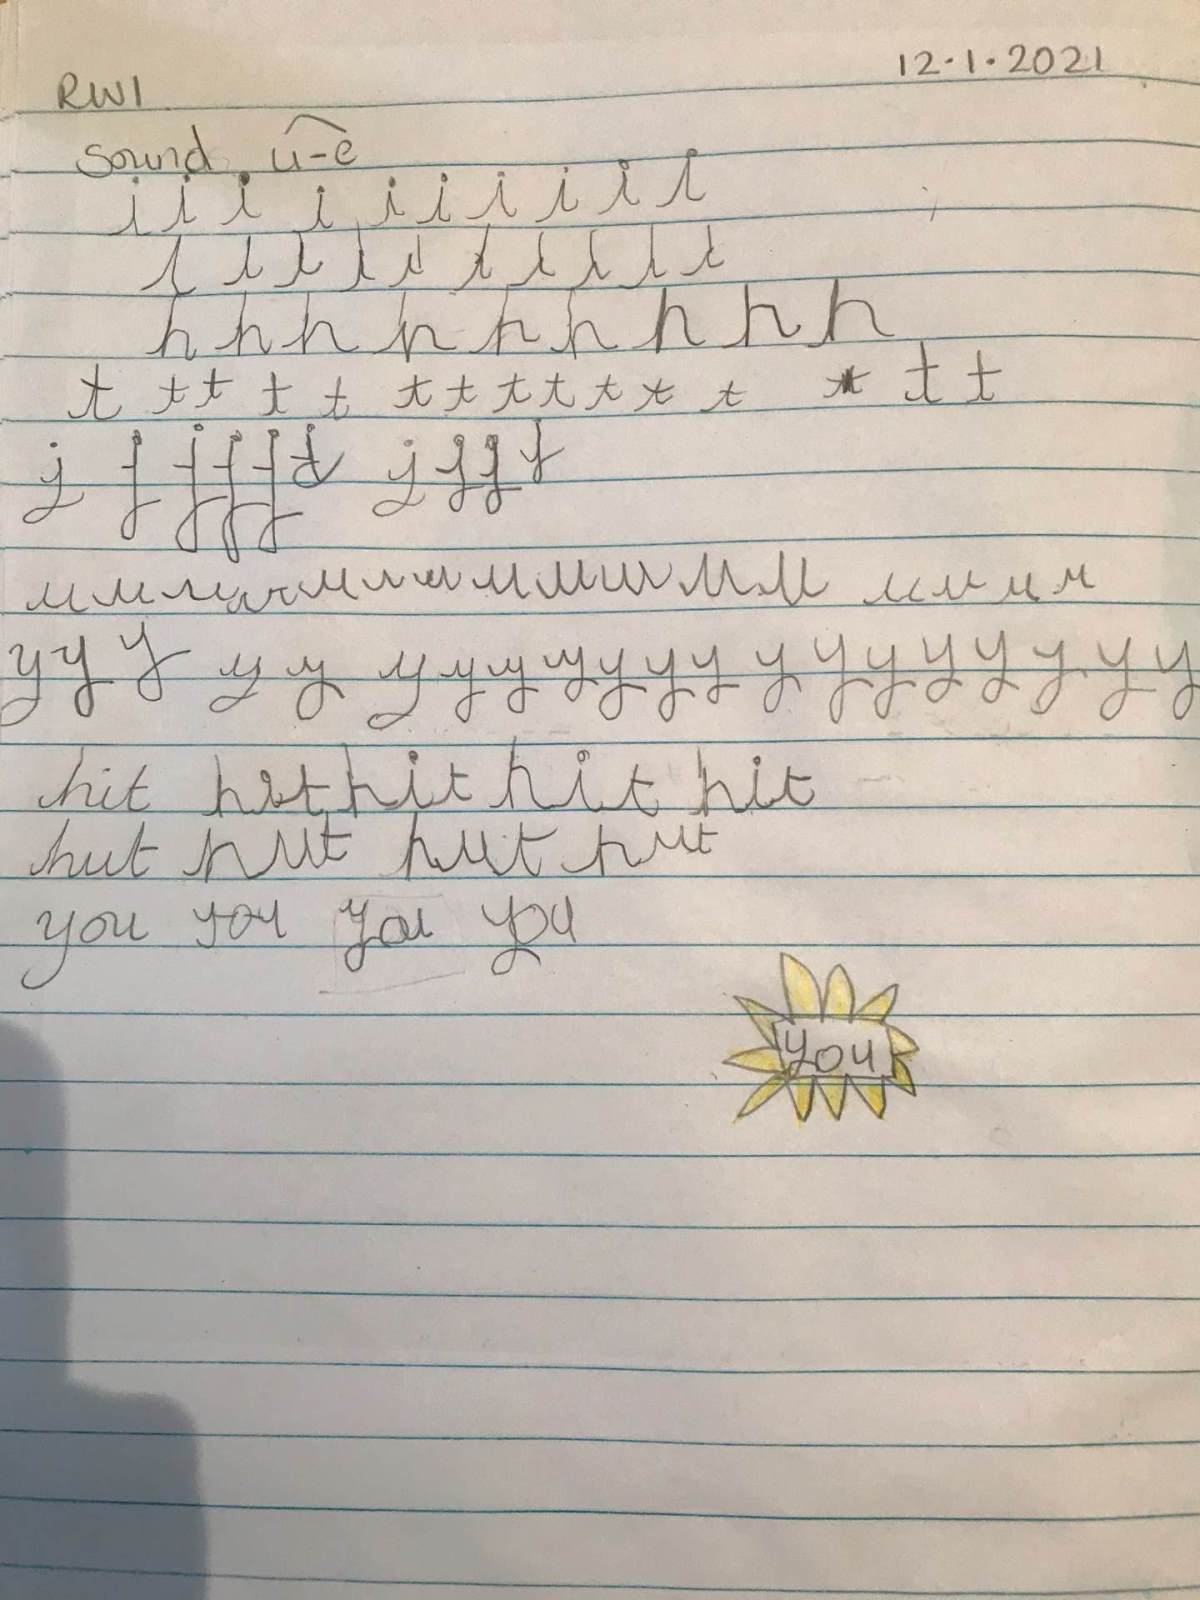 12.1.2021
RWI
sound u-e
i i i i i i i i i i
l l l l l l l l l l
h h h h h h h h h
t t t t t t t t t t t t t t t
j j j j j j j j j j
u u u u u u u u u u u u u u u u
y y y y y y y y y y y y y y y y y y y y
hit hit hit hit hit
hut hut hut hut
you you you you
you